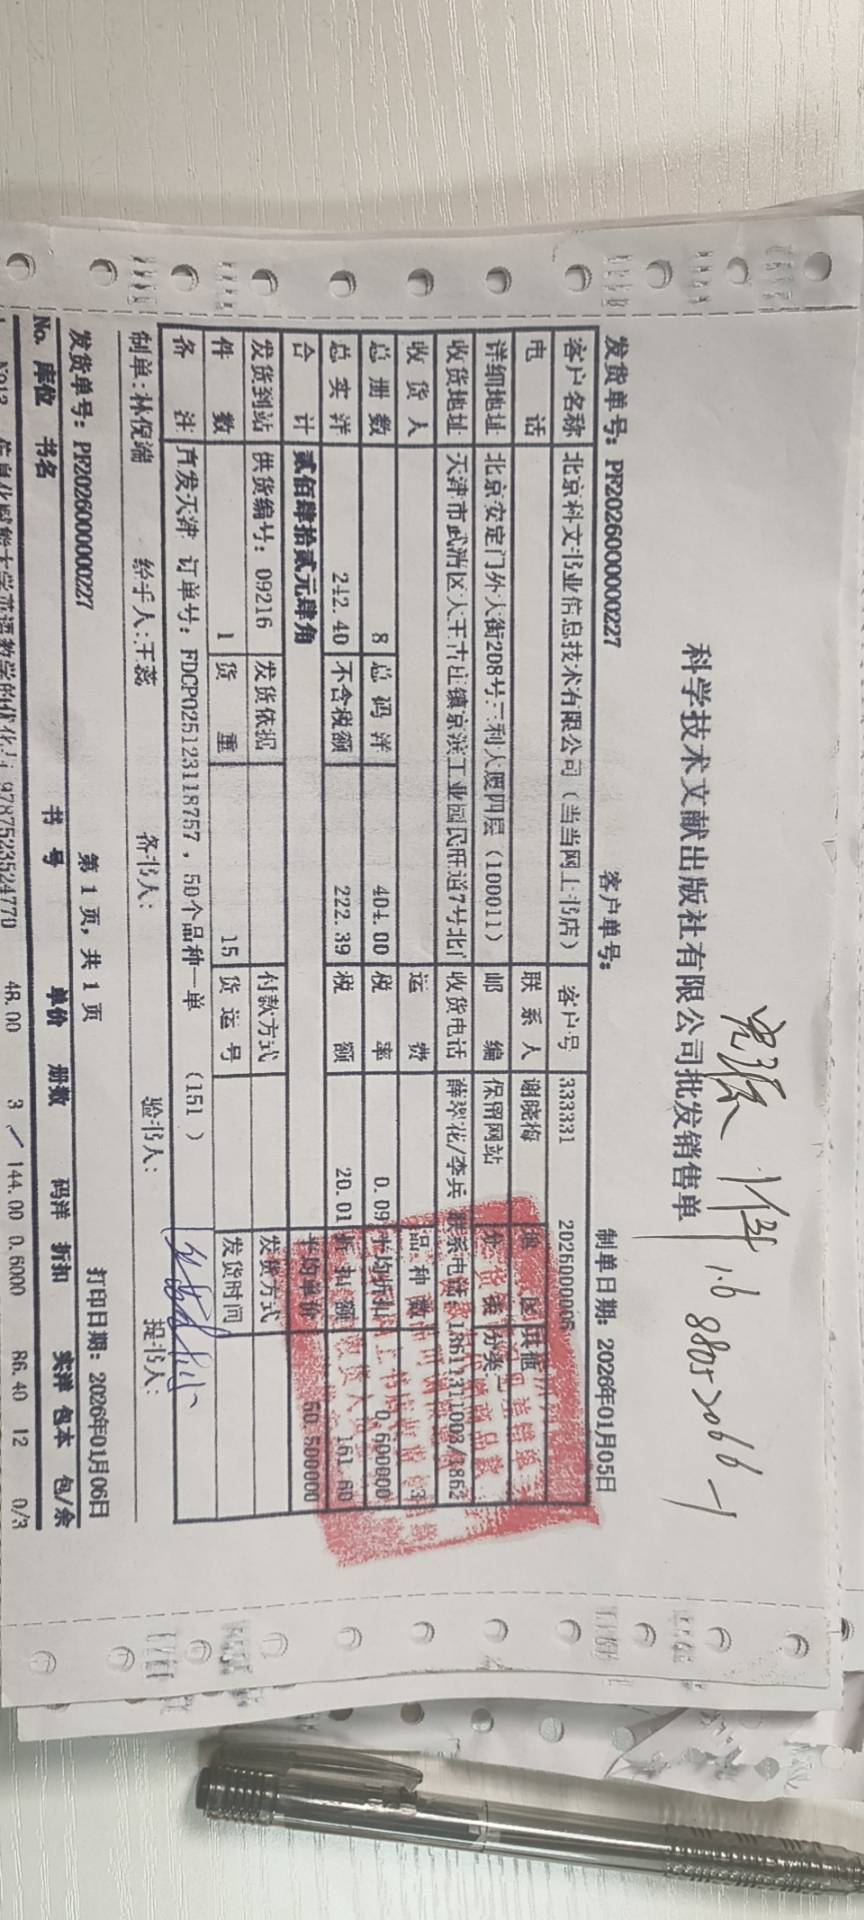 1件 1.6 88052066-1
科学技术文献出版社有限公司批发销售单
发货单号：PF2026000000227 客户单号： 制单日期：2026年01月05日
客户名称 北京科文书业信息技术有限公司（当当网上书店） 客户号 333331 2026000005
电话 联系人 谢晓梅 地区 其他
详细地址 北京安定门外大街208号三利大厦四层（100011） 邮编 保留网站 分类
收货地址 天津市武清区大王古庄镇京滨工业园民旺道7号北门 收货电话 薛翠花/李兵 联系电话：18611311003/1862
收货人 运费 品种数 3
总册数 8 总码洋 404.00 税率 0.09 平均折扣 0.600000
总实洋 242.40 不含税额 222.39 税额 20.01 折扣额 161.60
合计 贰佰肆拾贰元肆角 平均单价 50.500000
发货到站 供货编号：09216 发货依据 付款方式 发货方式
件数 1 货重 15 货运号 发货时间
备注 直发天津 订单号：FDCP025123118757，50个品种一单 （151 ）
制单：林倪端 经手人：王蕊 备书人： 验书人： 提书人：
发货单号：PF2026000000227 第 1 页，共 1 页 打印日期：2026年01月06日
No. 库位 书名 书号 单价 册数 码洋 折扣 实洋 包本 包/余
信息化赋能大学英语教学的优化 9787523524770 48.00 3 144.00 0.6000 86.40 12 0/3